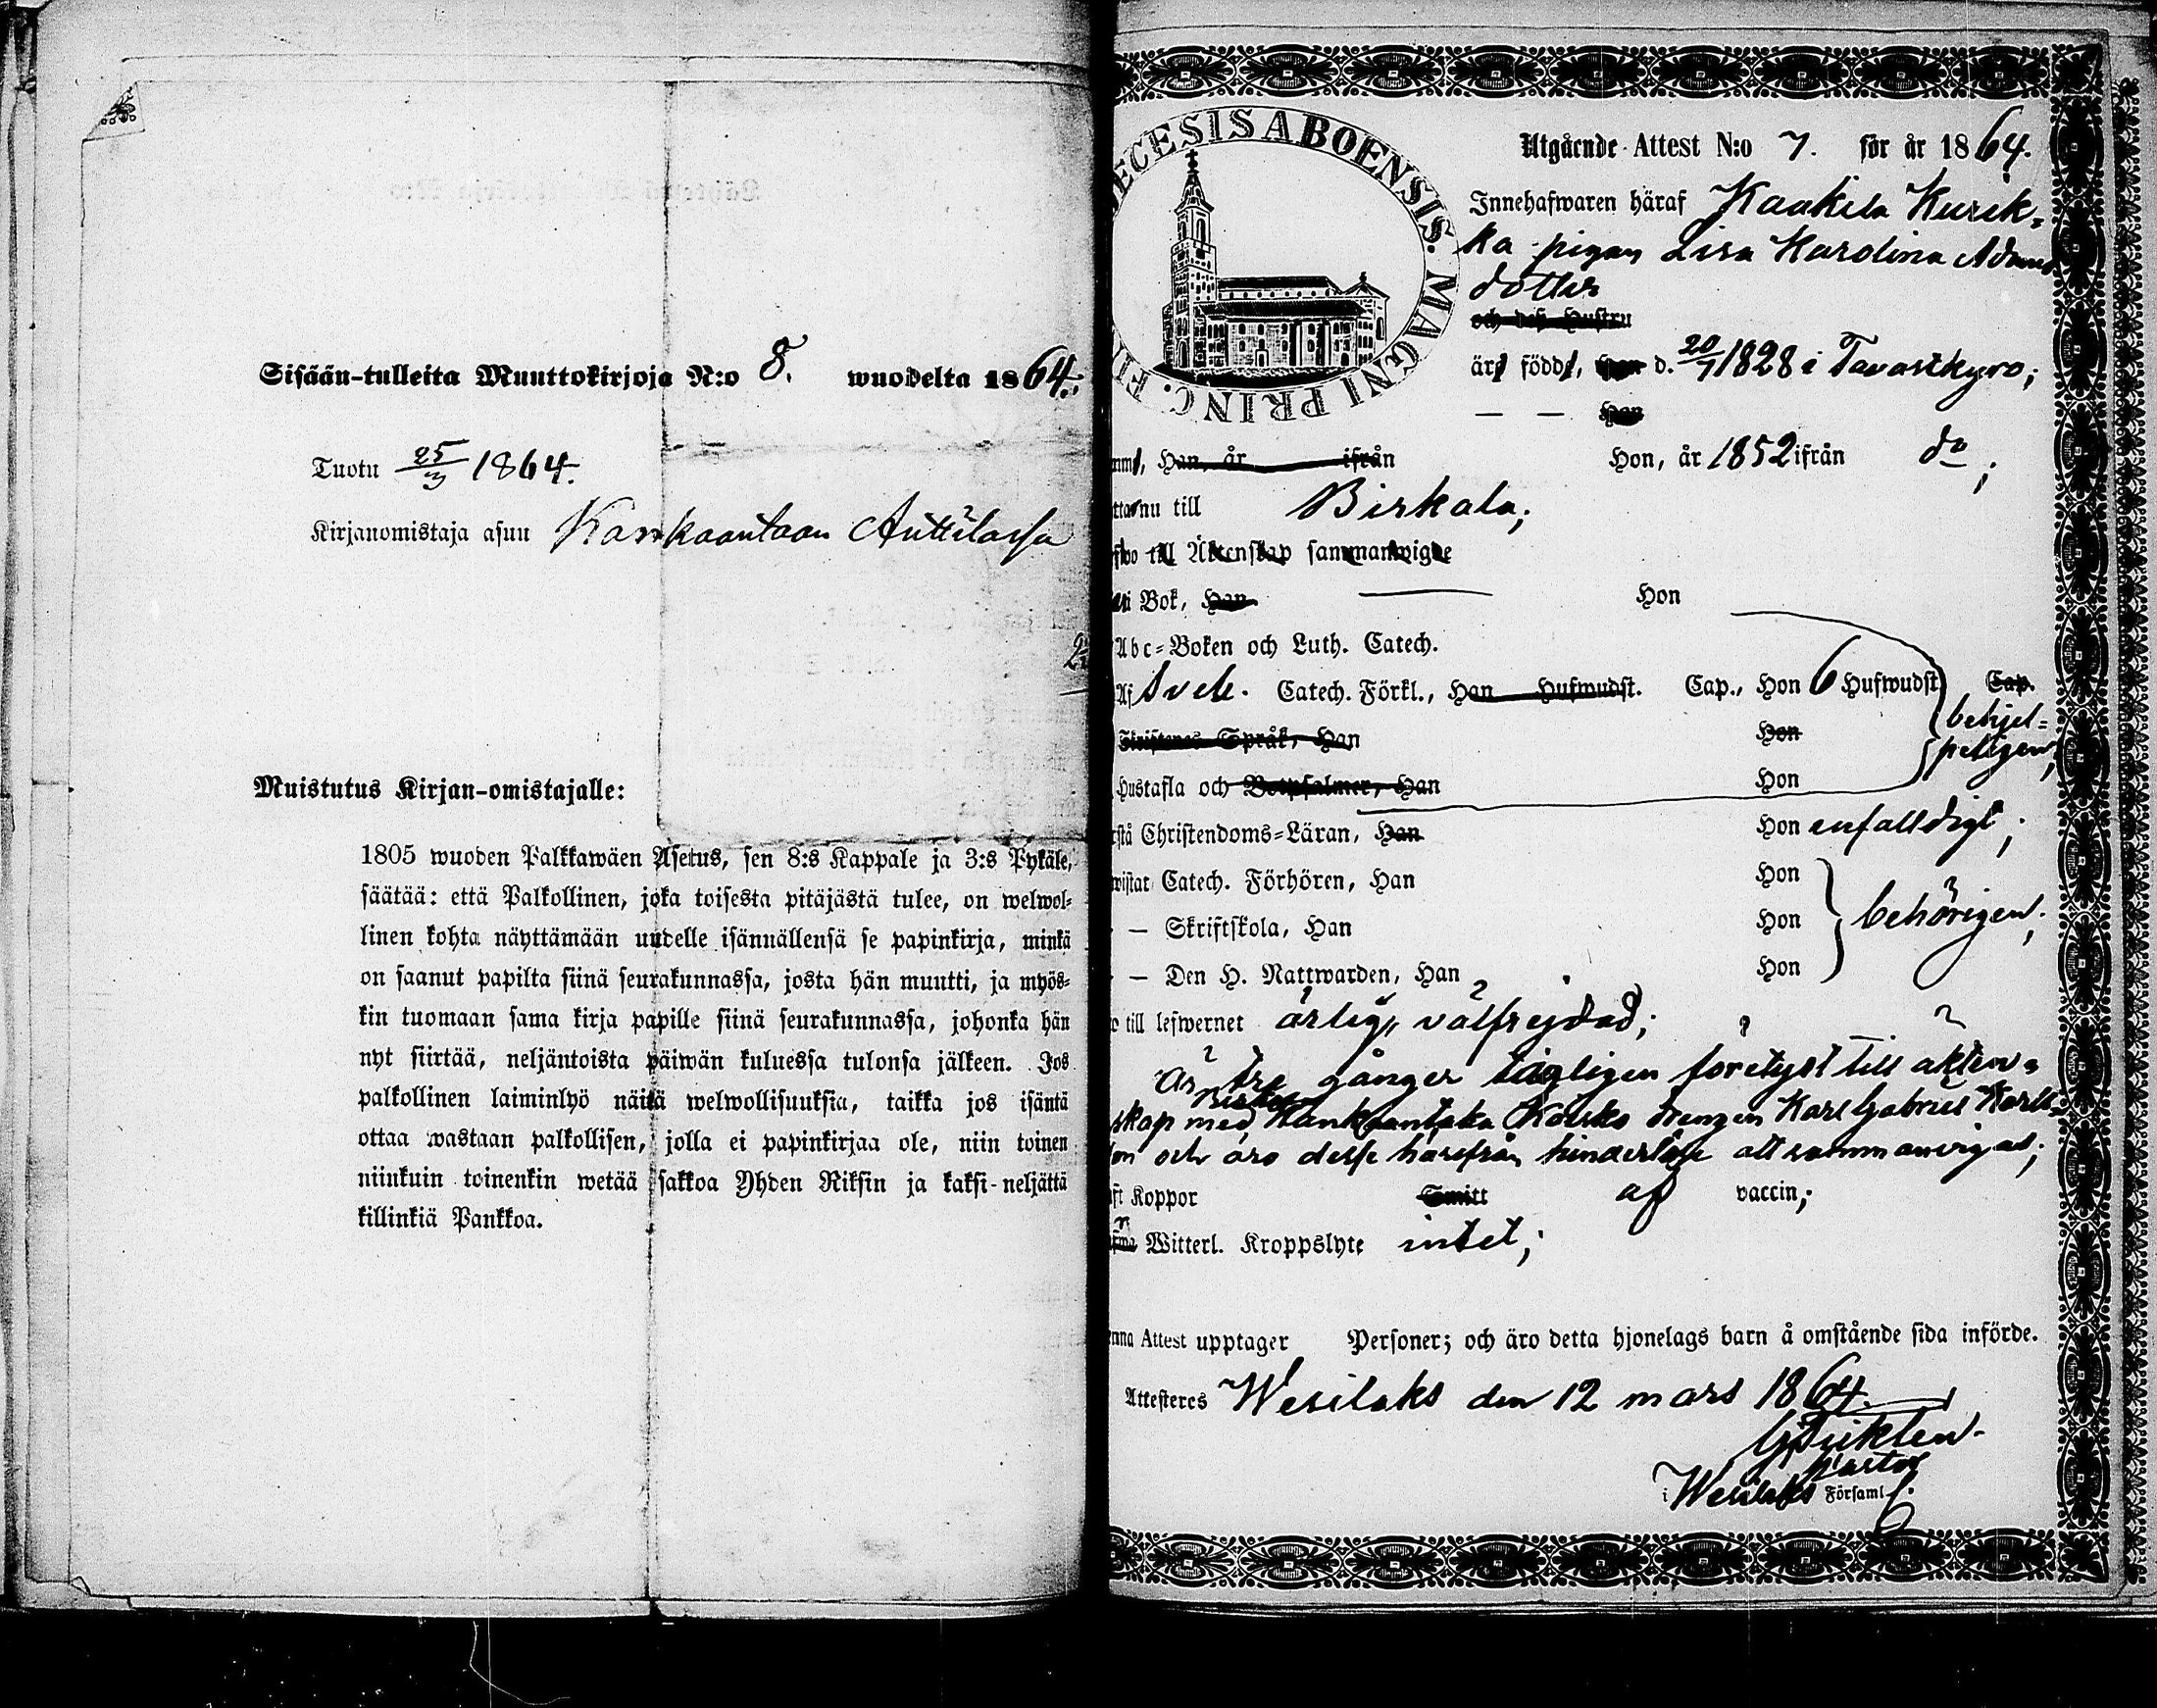 Sisään-tulleita Muuttokirjoja N:o 8. wuodelta 1864.
Tuotu 25/3 1864.
Kirjanomistaja asuu Kankaantaan Anttilassa
Muistutus Kirjan-omistajalle:
1805 wuoden Palkkawäen Asetus, sen 8:s Kappale ja 3:s Pykäle,
säätää: että Palkollinen, joka toisesta pitäjästä tulee, on welwol-
linen kohta näyttämään uudelle isännällensä se papinkirja, minkä
on saanut papilta siinä seurakunnassa, josta hän muutti, ja myös-
kin tuomaan sama kirja papille siinä seurakunnassa, johonka hän
nyt siirtää, neljäntoista päiwän kuluessa tulonsa jälkeen. Jos
palkollinen laiminlyö näitä welwollisuuksia, taikka jos isäntä
ottaa wastaan palkollisen, jolla ei papinkirjaa ole, niin toinen
niinkuin toinenkin wetää sakkoa Yhden Riksin ja kaksi-neljättä
killinkiä Pankkoa.
DIECESIS ABOENSIS. MAGNI PRINC. FI
Utgående Attest N:o 7. för år 1864.
Innehafwaren häraf Kaakila Kurik-
ka pigan Lisa Karolina Adams
dotter
och dess Hustru
är född, d. 20/7 1828 i Tavastkyro;
— — Han
Han, år ifrån Hon, år 1852 ifrån do;
nu till Birkala;
till Äktenskap sammanwigde
i Bok, Han Hon
Abc-Boken och Luth. Catech.
Af Sveb. Catech. Förkl., Han Hufwudst. Cap., Hon 6 Hufwudst Cap.
behjel-
peligen;
Skriftenes Språk, Han Hon
Hustafla och Botpsalmer, Han Hon
Christendoms-Läran, Han Hon enfalldigt;
wistat Catech. Förhören, Han Hon
— Skriftskola, Han Hon behörigen;
— Den H. Nattwarden, Han Hon
till lefwernet ärlig, välfrejdad;
Är tre gånger lagligen förelyst till äkten-
skap med Birkala Kankaantaka Kolsko drengen Karl Gabriel Karls-
son och äro desse härifrån hinderlöse att sammanvigas;
Koppor Smitt af vaccin;
Witterl. Kroppslyte intet;
Attest upptager Personer; och äro detta hjonelags barn å omstående sida införde.
Attesteres Wesilaks den 12 mars 1864.
pastor
i Wesilaks Församl.